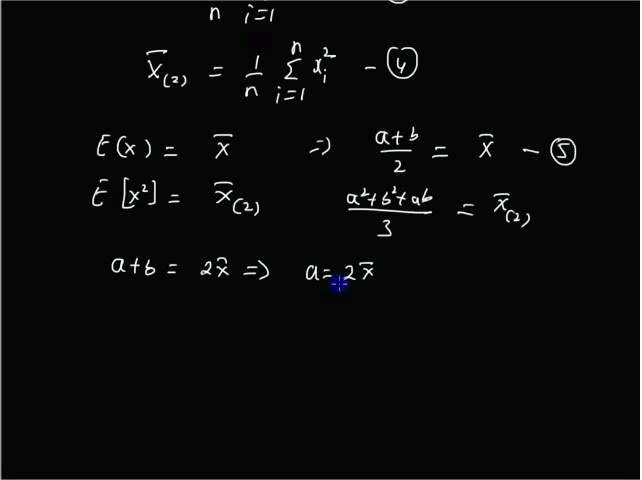 n i=1
X̄₍₂₎ = 1/n Σ_{i=1}^{n} x_i² - ④
E(x) = x̄ => (a+b)/2 = x̄ - ⑤
E[x²] = x̄₍₂₎ (a²+b²+ab)/3 = x̄₍₂₎
a+b = 2x̄ => a= 2x̄